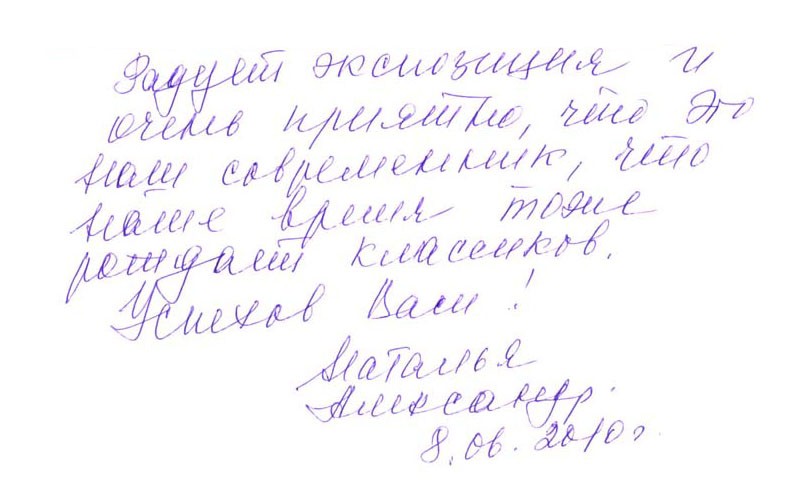 Радует экспозиция и
очень приятно, что это
наш современник, что
наше время тоже
рождает классиков.
Успехов Вам!
Наталья
Александр.
8.06.2010г.